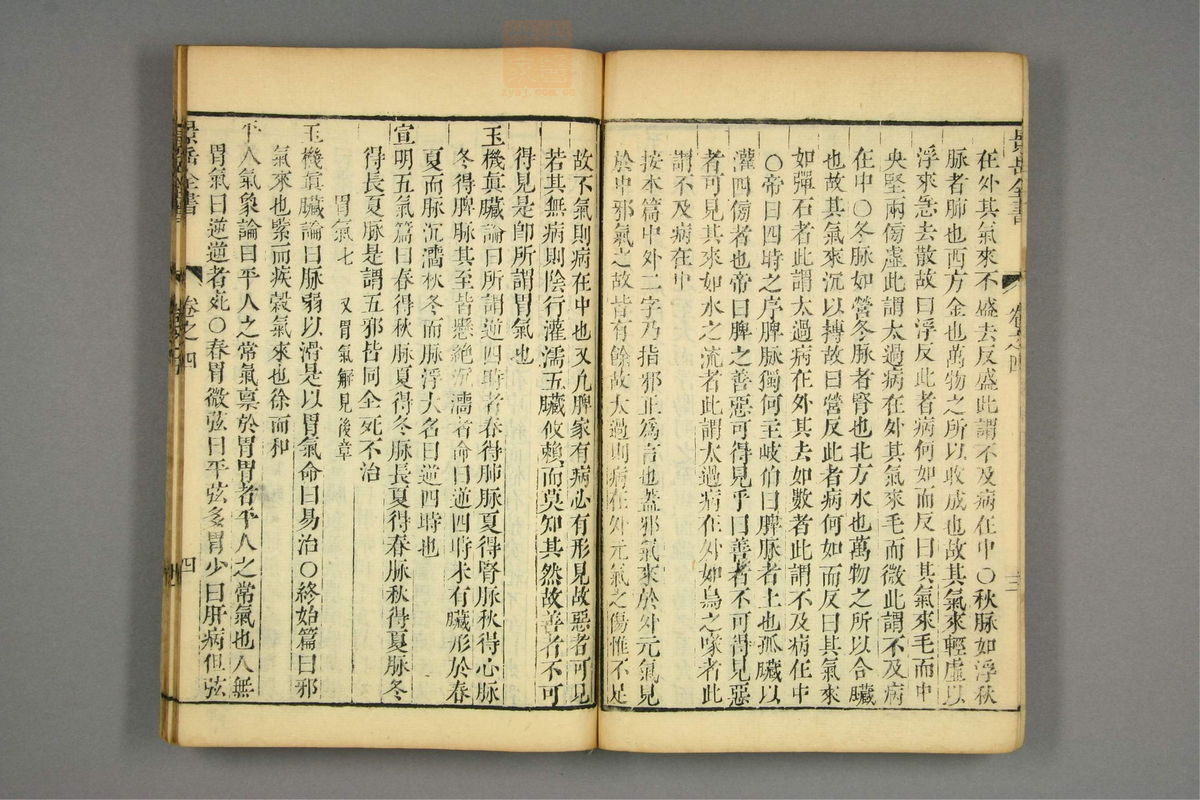 在外其氣來不盛去反盛此謂不及病在中○秋脉如浮秋
脉者肺也西方金也萬物之所以收成也故其氣來輕虛以
浮來急去散故曰浮反此者病何如而反曰其氣來毛而中
央堅兩傍虛此謂太過病在外其氣來毛而微此謂不及病
在中○冬脉如營冬脉者腎也北方水也萬物之所以合臟
也故其氣來沉以摶故曰營反此者病何如而反曰其氣來
如彈石者此謂太過病在外其去如數者此謂不及病在中
○帝曰四時之序脾脉獨何主岐伯曰脾脉者土也孤臟以
灌四傍者也帝曰脾之善惡可得見乎曰善者不可得見惡
者可見其來如水之流者此謂太過病在外如鳥之喙者此
謂不及病在中
按本篇中外二字乃指邪正爲言也蓋邪氣來於外元氣見
於中邪氣之故皆有餘故太過則病在外元氣之傷惟不足
景岳全書
卷之四
三
故不氣則病在中也又凡脾家有病必有形見故惡者可見
若其無病則陰行灌濡五臟攸賴而莫知其然故善者不可
得見是卽所謂胃氣也
玉機眞臟論曰所謂逆四時者春得肺脉夏得腎脉秋得心脉
冬得脾脉其至皆懸絕沉濇者命曰逆四時未有臟形於春
夏而脉沉濇秋冬而脉浮大名曰逆四時也
宣明五氣篇曰春得秋脉夏得冬脉長夏得春脉秋得夏脉冬
得長夏脉是謂五邪皆同全死不治
胃氣七 又胃氣解見後章
玉機眞臟論曰脉弱以滑是以胃氣命曰易治○終始篇曰邪
氣來也緊而疾穀氣來也徐而和
平人氣象論曰平人之常氣禀於胃胃者平人之常氣也人無
胃氣曰逆逆者死○春胃微弦曰平弦多胃少曰肝病但弦
景岳全書
卷之四
四
zysj.com.cn